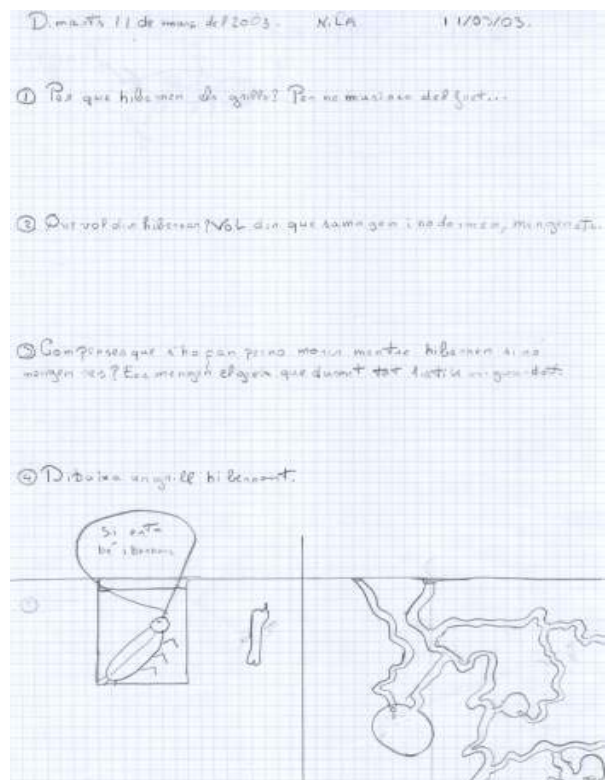 Dimarts 11 de març del 2003. NiLA 11/03/03.
① Per que hibernen els grills? Per no murirse del fret...
② Que vol dir hibernar? VOL dir que samagen i no dormen, mengen etc.
③ Com penses que s'ho fan per no morir mentre hibernen si no
mengen res? Es mengen el greix que durant tot l'estiu an guardat.
④ Dibuixa un grill hibernant.
Si esta
be ibernar